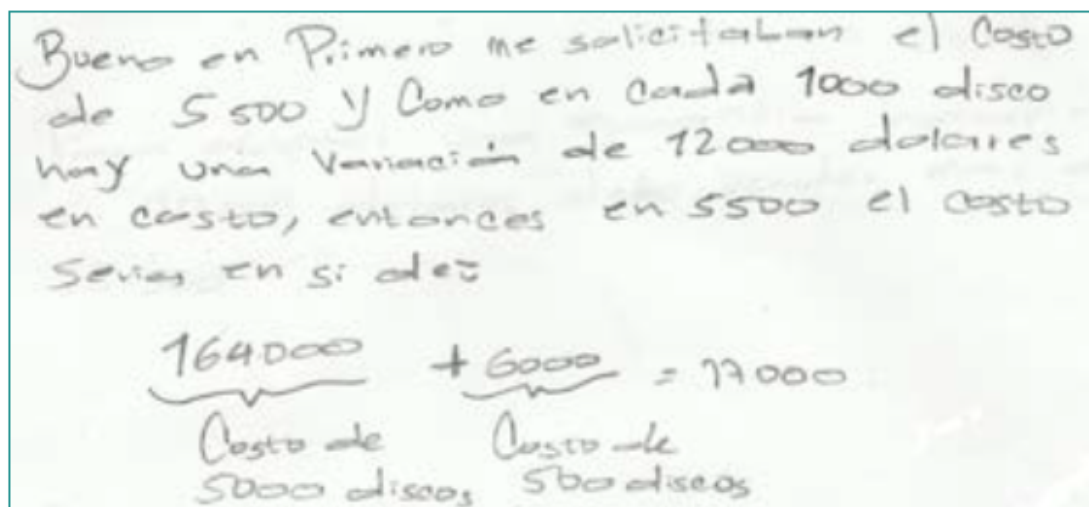 Bueno en Primero me solicitaban el Costo
de 5500 y Como en cada 1000 disco
hay una Variación de 12000 dolares
en costo, entonces en 5500 el costo
Seria en si de:
164000 + 6000 = 17000
Costo de Costo de
5000 discos 500 discos